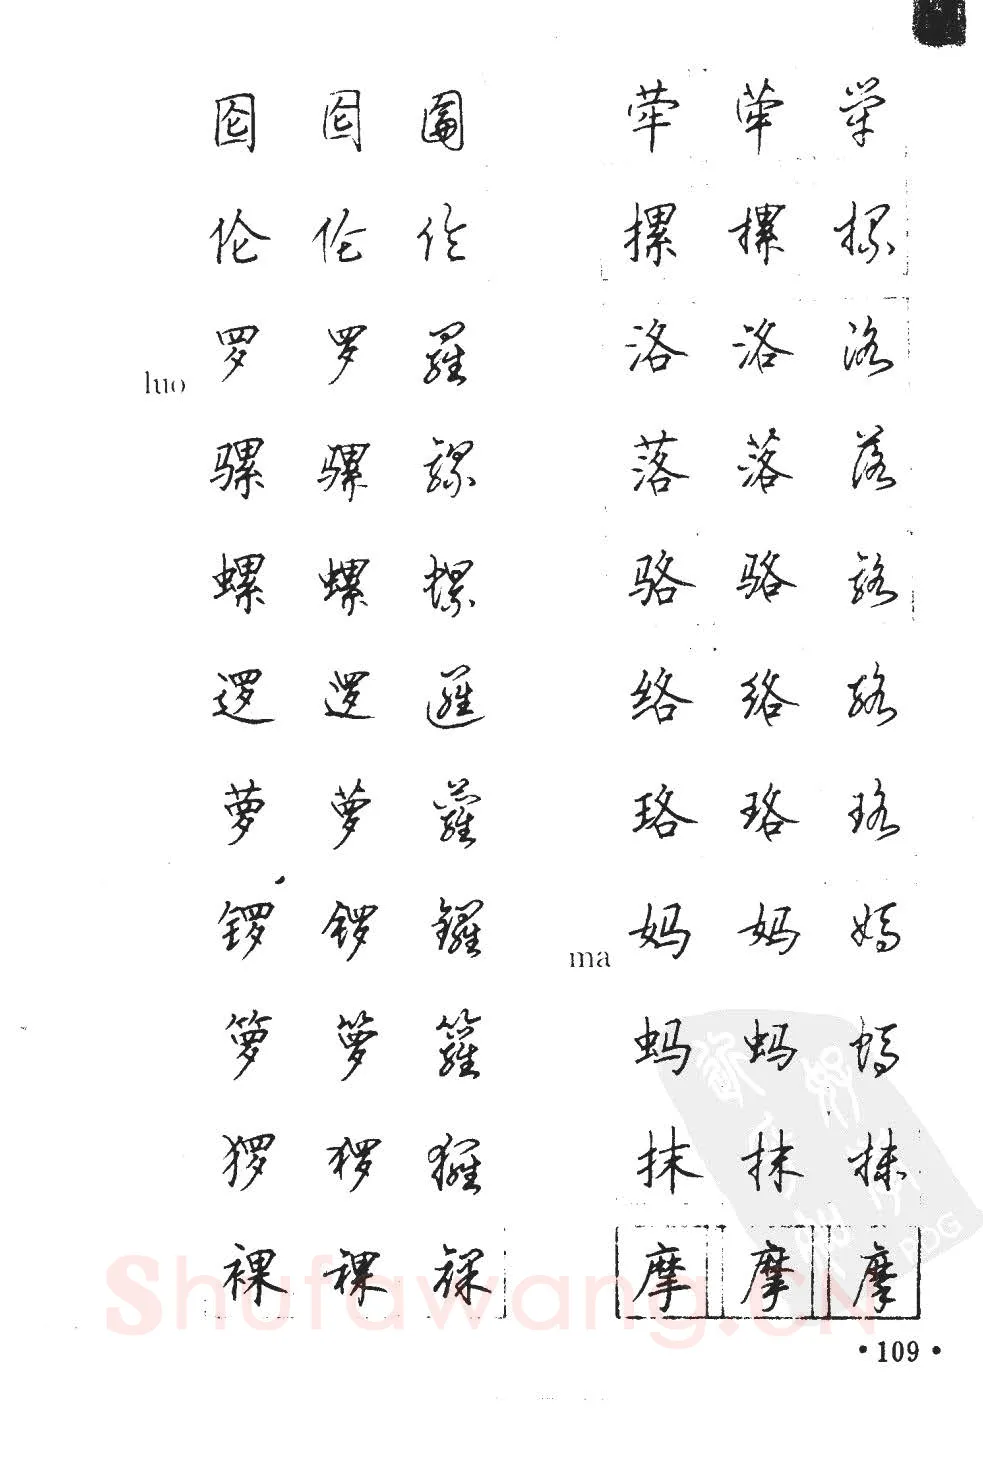 囵 囵 圇
伦 伦 伦
luo 罗 罗 羅
骡 骡 騾
螺 螺 螺
逻 逻 邏
萝 萝 蘿
锣 锣 鑼
箩 箩 籮
猡 猡 玀
裸 裸 裸
荦 荦 荦
摞 摞 摞
洛 洛 洛
落 落 落
骆 骆 駱
络 络 絡
珞 珞 珞
ma 妈 妈 媽
蚂 蚂 螞
抹 抹 抹
摩 摩 摩
Shufawang.CN
PDG
·109·